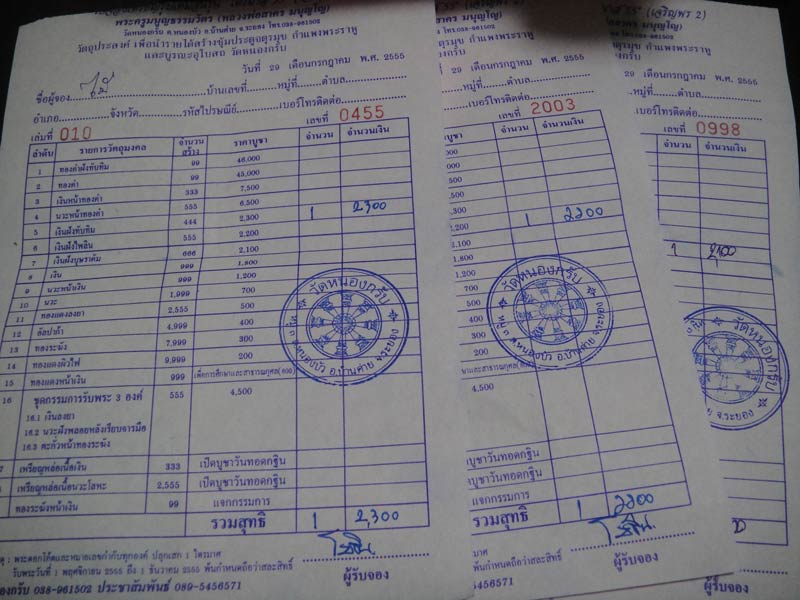 พระครูมนูญธรรมวัตร (หลวงพ่อสาคร มนุญโญ)
วัดหนองกรับ ต.หนองบัว อ.บ้านค่าย จ.ระยอง โทร.038-961502
วัตถุประสงค์ เพื่อนำรายได้สร้างซุ้มประตูจตุรมุข กำแพงพระราหู
และบูรณะอุโบสถ วัดหนองกรับ
วันที่ 29 เดือนกรกฎาคม พ.ศ. 2555
ชื่อผู้จอง บ้านเลขที่ หมู่ที่ ตำบล
อำเภอ จังหวัด รหัสไปรษณีย์ เบอร์โทรติดต่อ
เล่มที่ 010 เลขที่ 0455
ลำดับ รายการวัตถุมงคล จำนวนสร้าง ราคาบูชา จำนวน จำนวนเงิน
1 ทองคำฝังทับทิม 99 46,000
2 ทองคำ 99 45,000
3 เงินหน้าทองคำ 333 7,500
4 นวะหน้าทองคำ 555 6,500
5 เงินฝังทับทิม 444 2,300 1 2,300
6 เงินฝังไพลิน 555 2,200
7 เงินฝังบุษราคัม 666 2,100
8 เงิน 999 1,800
9 นวะหน้าเงิน 999 1,200
10 นวะ 1,999 700
11 ทองแดงลงยา 2,555 500
12 อัลปาก้า 4,999 400
13 ทองระฆัง 7,999 300
14 ทองแดงผิวไฟ 9,999 200
15 ทองแดงหน้าเงิน 999 เพื่อการศึกษาและสาธารณกุศล( 600
16 ชุดกรรมการรับพระ 3 องค์ 555 4,500
16.1 เงินลงยา
16.2 นวะฝังพลอยหลังเรียบจารมือ
16.3 ตะกั่วหน้าทองระฆัง
7 เหรียญหล่อเนื้อเงิน 333 เปิดบูชาวันทอดกฐิน
เหรียญหล่อเนื้อนวะโลหะ 2,555 เปิดบูชาวันทอดกฐิน
ทองระฆังหน้าเงิน 99 แจกกรรมการ
รวมสุทธิ 1 2,300
ผู้รับจอง
: พระตอกโค้ดและหมายเลขกำกับทุกองค์ ปลุกเสก 1 ไตรมาส
รับพระวันที่ 1 พฤศจิกายน 2555 ถึง 1 ธันวาคม 2555 พ้นกำหนดถือว่าสละสิทธิ์
องกรับ 038-961502 ประชาสัมพันธ์ 089-5456571
วัดหนองกรับ
ต.หนองบัว อ.บ้านค่าย จ.ระยอง
มนุญโญ)
โทร.038-961502
กำแพงพระราหู
29 เดือนกรกฎาคม พ.ศ. 2555
หมู่ที่ ตำบล
เบอร์โทรติดต่อ
เลขที่ 2003
บูชา จำนวน จำนวนเงิน
000
000
500
500
,300
2,200 1 2200
2,100
1,800
1,200
700
500
400
300
200
และสาธารณกุศล( 600
4,500
บูชาวันทอดกฐิน
บูชาวันทอดกฐิน
แจกกรรมการ
รวมสุทธิ 1 2200
ผู้รับจอง
มาส
พ้นกำหนดถือว่าสละสิทธิ์
5456571
วัดหนองกรับ
ต.หนองบัว อ.บ้านค่าย จ.ระยอง
55" (เจริญพร 2)
กรกฎาคม พ.ศ. 2555
ตำบล
เบอร์โทรติดต่อ
เลขที่ 0998
จำนวน จำนวนเงิน
1 2100
วัดหนองกรับ
จ.ระยอง
ผู้รับจอง